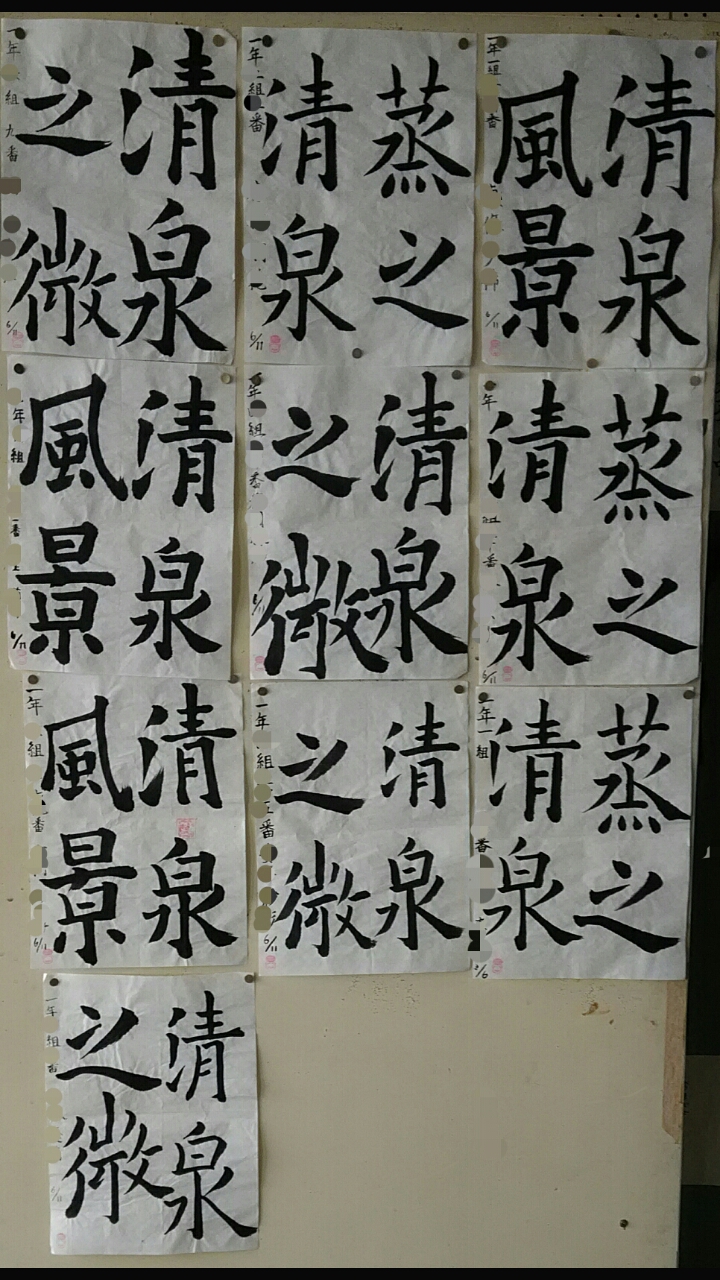 清泉
之微
一年 組 九番
6/11
蒸之
清泉
一年 組 番
6/11
清泉
風景
一年一組 番
6/11
清泉
風景
年 組
清泉
之微
年 組 番
蒸之
清泉
年 組 番
6/11
清泉
風景
一年 組 番
清泉
之微
一年 組 五番
6/11
蒸之
清泉
一年一組 番
清泉
之微
一年 組